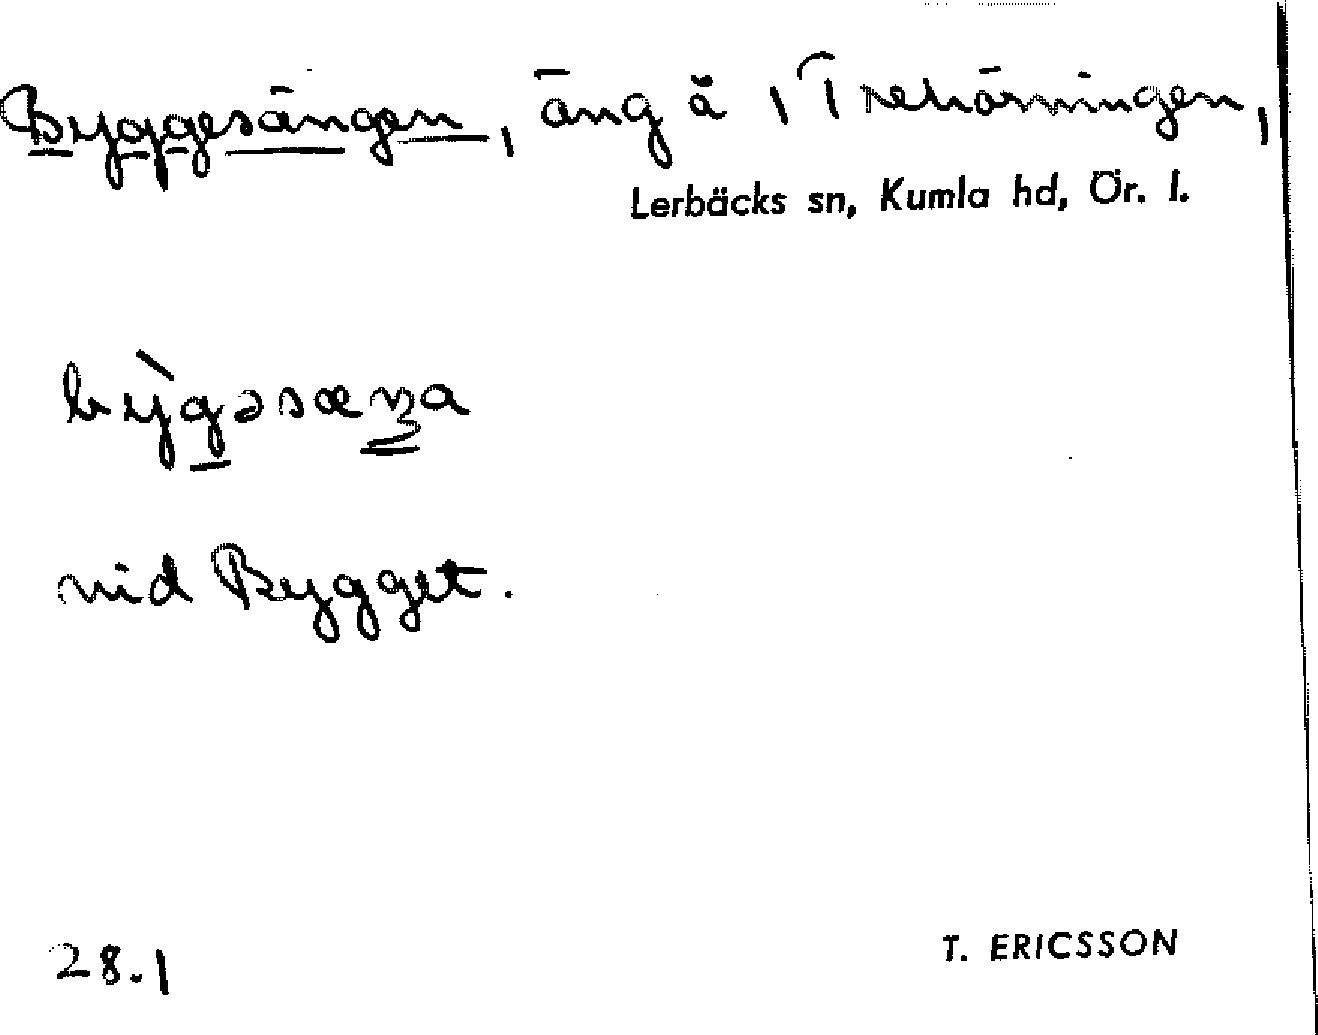 Byggesängen, äng å 1 Trehörningen,
Lerbäcks sn, Kumla hd, Ör. l.
bỳgəsæŋa
vid Bygget.
28.1
T. ERICSSON